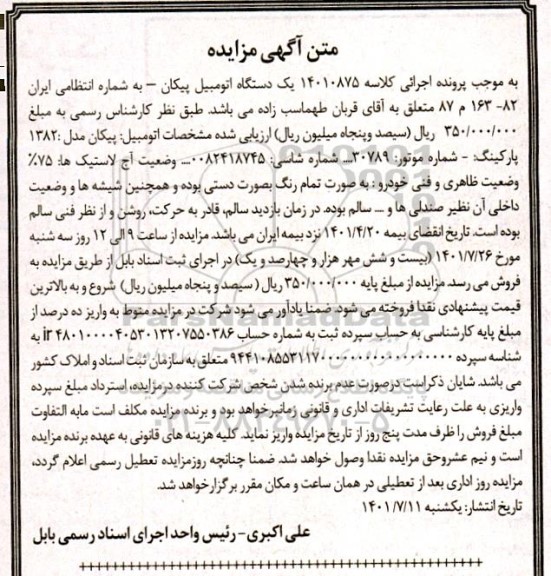 متن آگهی مزایده
به موجب پرونده اجرائی کلاسه ۱۴۰۱۰۸۷۵ یک دستگاه اتومبیل پیکان – به شماره انتظامی ایران
۸۲- ۱۶۳ م ۸۷ متعلق به آقای قربان طهماسب زاده می باشد. طبق نظر کارشناس رسمی به مبلغ
۳۵۰/۰۰۰/۰۰۰ ریال (سیصد وپنجاه میلیون ریال) ارزیابی شده مشخصات اتومبیل: پیکان مدل :۱۳۸۲
پارکینگ: – شماره موتور: ۳۰۷۸۹... شماره شاسی: ۰۰۸۲۴۱۸۷۴۵... وضعیت آج لاستیک ها: ۷۵٪
وضعیت ظاهری و فنی خودرو : به صورت تمام رنگ بصورت دستی بوده و همچنین شیشه ها و وضعیت
داخلی آن نظیر صندلی ها و ... سالم بوده. در زمان بازدید سالم، قادر به حرکت، روشن و از نظر فنی سالم
بوده است. تاریخ انقضای بیمه ۱۴۰۱/۴/۲۰ نزد بیمه ایران می باشد. مزایده از ساعت ۹ الی ۱۲ روز سه شنبه
مورخ ۱۴۰۱/۷/۲۶ (بیست و شش مهر هزار و چهارصد و یک) در اجرای ثبت اسناد بابل از طریق مزایده به
فروش می رسد. مزایده از مبلغ پایه ۳۵۰/۰۰۰/۰۰۰ ریال ( سیصد و پنجاه میلیون ریال) شروع و به بالاترین
قیمت پیشنهادی نقدا فروخته می شود. ضمنا یادآور می شود شرکت در مزایده منوط به واریز ده درصد از
مبلغ پایه کارشناسی به حساب سپرده ثبت به شماره حساب ir ۴۸۰۱۰۰۰۰۴۰۵۳۰۱۳۲۰۷۵۵۰۳۸۶ به
شناسه سپرده متعلق به سازمان ثبت اسناد و املاک کشور
می باشد. شایان ذکراست درصورت عدم برنده شدن شخص شرکت کننده درمزایده، استرداد مبلغ سپرده
واریزی به علت رعایت تشریفات اداری و قانونی زمانبرخواهد بود و برنده مزایده مکلف است مابه التفاوت
مبلغ فروش را ظرف مدت پنج روز از تاریخ مزایده واریز نماید. کلیه هزینه های قانونی به عهده برنده مزایده
است و نیم عشروحق مزایده نقدا وصول خواهد شد. ضمنا چنانچه روزمزایده تعطیل رسمی اعلام گردد،
مزایده روز اداری بعد از تعطیلی در همان ساعت و مکان مقرر برگزارخواهد شد.
تاریخ انتشار: یکشنبه ۱۴۰۱/۷/۱۱
علی اکبری- رئیس واحد اجرای اسناد رسمی بابل